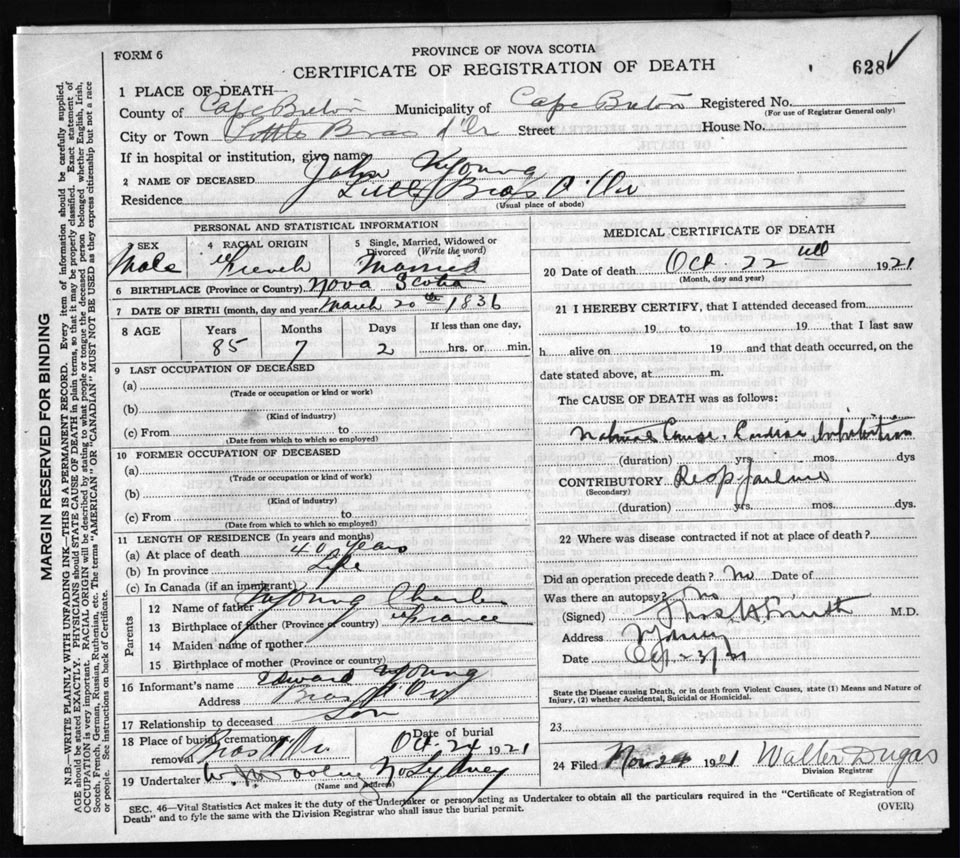 FORM 6
PROVINCE OF NOVA SCOTIA
CERTIFICATE OF REGISTRATION OF DEATH
628
MARGIN RESERVED FOR BINDING
N.B.—WRITE PLAINLY WITH UNFADING INK—THIS IS A PERMANENT RECORD. Every item of information should be carefully supplied.
AGE should be stated EXACTLY. PHYSICIANS should STATE CAUSE OF DEATH in plain terms, so that it may be properly classified. Exact statement of
OCCUPATION is very important. RACIAL ORIGIN will be described by stating to what people or tongue the deceased person belonged whether English, Irish,
Scotch, French, German, Russian, Ruthenian, etc. The terms "AMERICAN" OR "CANADIAN" MUST NOT BE USED as they express citizenship but not a race
or people. See instructions on back of Certificate.
1 PLACE OF DEATH—
County of Cape Breton Municipality of Cape Breton Registered No.
(For use of Registrar General only)
City or Town Little Bras d'Or Street House No.
If in hospital or institution, give name
2 NAME OF DECEASED John Young
Residence Little Bras d'Or
(Usual place of abode)
PERSONAL AND STATISTICAL INFORMATION
3 SEX Male
4 RACIAL ORIGIN French
5 Single, Married, Widowed or Divorced (Write the word) Married
6 BIRTHPLACE (Province or Country) Nova Scotia
7 DATE OF BIRTH (month, day and year) March 20th 1836
8 AGE Years 85 Months 7 Days 2 If less than one day, hrs. or min.
9 LAST OCCUPATION OF DECEASED
(a)
(Trade or occupation or kind or work)
(b)
(Kind of industry)
(c) From to
(Date from which to which so employed)
10 FORMER OCCUPATION OF DECEASED
(a)
(Trade or occupation or kind of work)
(b)
(Kind of industry)
(c) From to
(Date from which to which so employed)
11 LENGTH OF RESIDENCE (In years and months)
(a) At place of death 40 years
(b) In province Life
(c) In Canada (if an immigrant)
Parents
12 Name of father Young Charles
13 Birthplace of father (Province or country) France
14 Maiden name of mother
15 Birthplace of mother (Province or country)
16 Informant's name Edward Young
Address Bras d'Or
17 Relationship to deceased Son
18 Place of burial, cremation or removal Bras d'Or Date of burial Oct. 24 1921
19 Undertaker No Sydney
(Name and address)
MEDICAL CERTIFICATE OF DEATH
20 Date of death Oct. 22 1921
(Month, day and year)
21 I HEREBY CERTIFY, that I attended deceased from
19 to 19 that I last saw
h alive on 19 and that death occurred, on the
date stated above, at m.
The CAUSE OF DEATH was as follows:
Natural Cause. Cardiac
(duration) yrs. mos. dys
CONTRIBUTORY Resp failure
(Secondary)
(duration) yrs. mos. dys.
22 Where was disease contracted if not at place of death?
Did an operation precede death? No Date of
Was there an autopsy? No
(Signed) M.D.
Address
Date Oct 23/21
State the Disease causing Death, or in death from Violent Causes, state (1) Means and Nature of
Injury, (2) whether Accidental, Suicidal or Homicidal.
23
24 Filed Nov 24 1921 Walter Dugas
Division Registrar
SEC. 46—Vital Statistics Act makes it the duty of the Undertaker or person acting as Undertaker to obtain all the particulars required in the "Certificate of Registration of
Death" and to fyle the same with the Division Registrar who shall issue the burial permit.
(OVER)